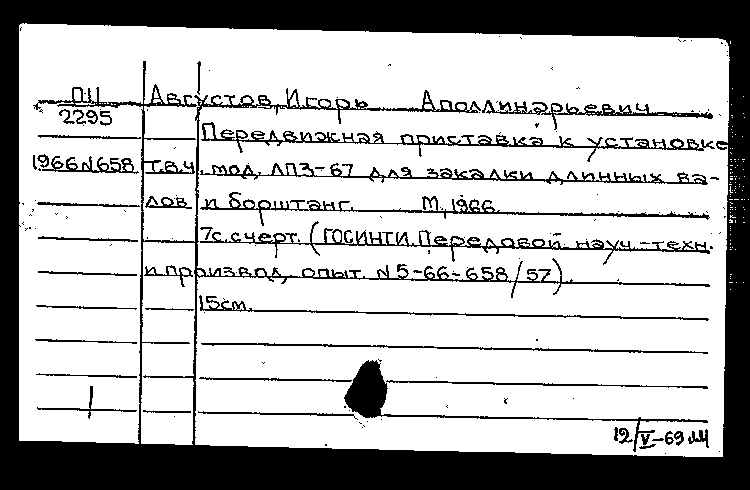 ОЦ Августов, Игорь Аполлинарьевич
2295
Передвижная приставка к установке
1966 N 658 Т.В.Ч. мод. ЛПЗ-67 для закалки длинных ва-
лов и борштанг. М., 1966.
7с. с черт. (ГОСИНТИ. Передовой науч.-техн.
и производ. опыт. N 5-66-658/57).
15см.
12/V-69